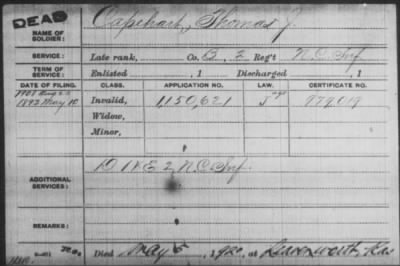 DEAD
NAME OF SOLDIER: Capehart, Thomas J.
SERVICE: Late rank, Co. B, 2 Reg't N.C. Inf.
TERM OF SERVICE: Enlisted , 1 Discharged , 1
DATE OF FILING. CLASS. APPLICATION NO. LAW. CERTIFICATE NO.
1901
1892 May 10 Invalid, 1,150,621 979,019
Widow,
Minor,
ADDITIONAL SERVICES: D 1 & E 2 N.C. Inf.
REMARKS:
Died May 5, 1920, at Leavenworth, Kas